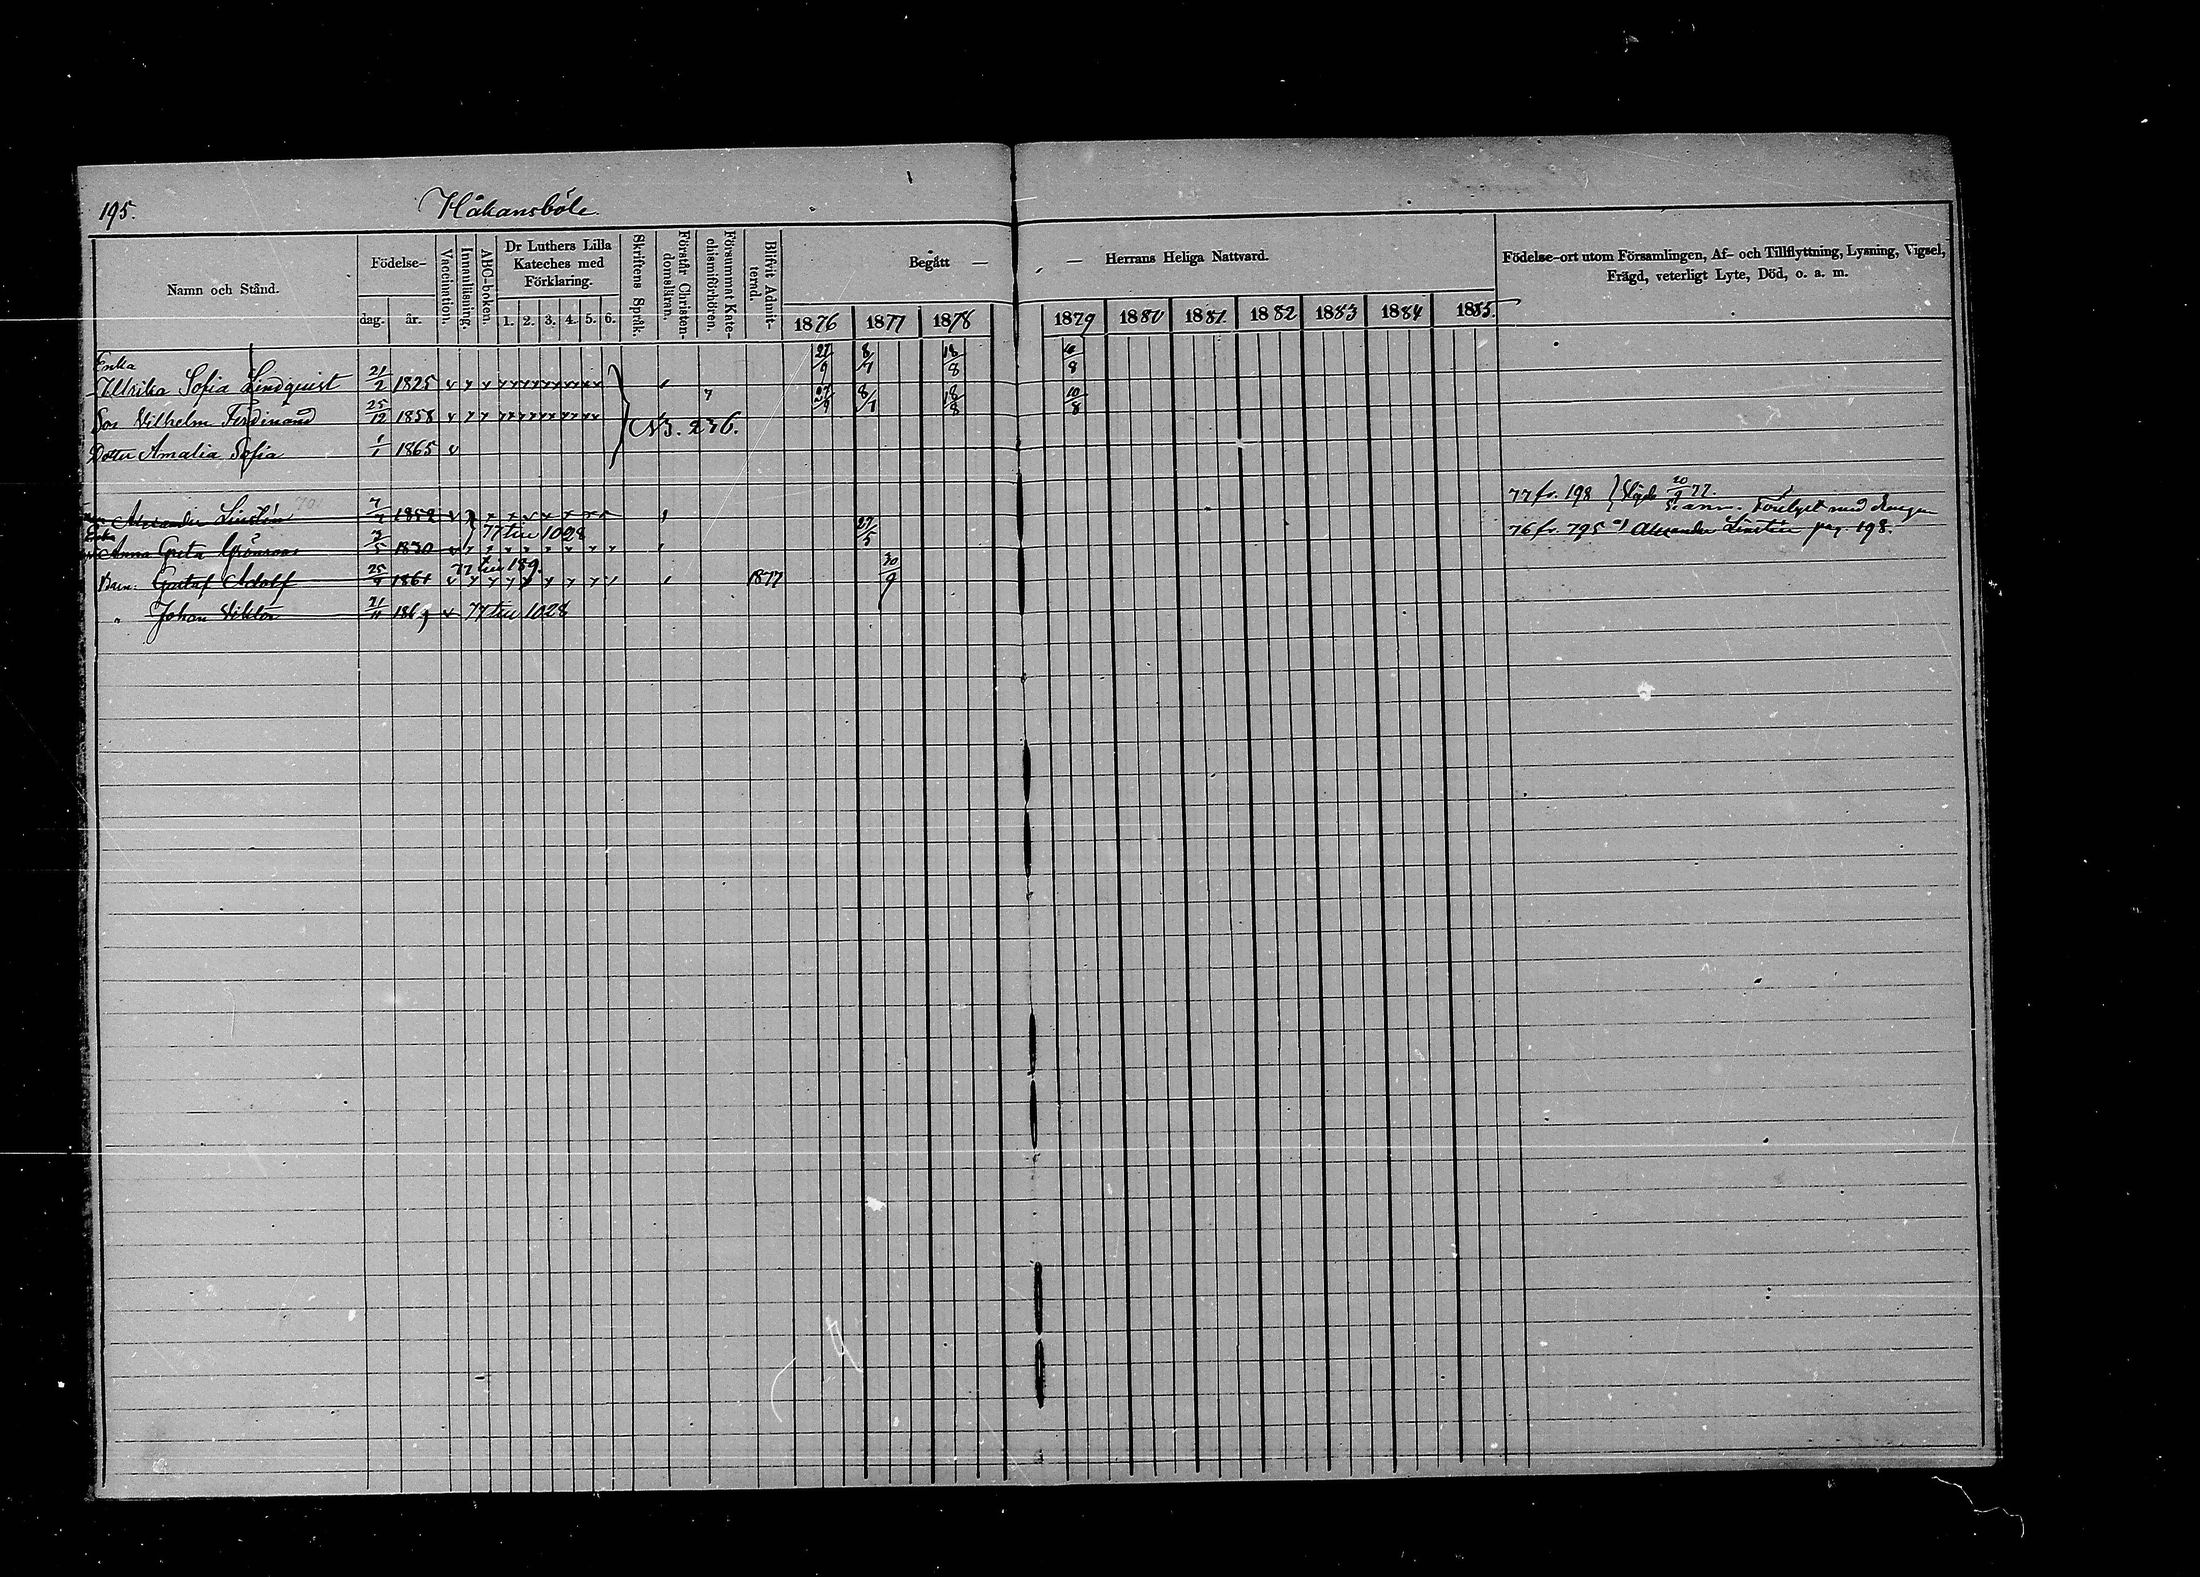 195.
Håkansböle
Namn och Stånd.
Födelse-
dag.
år.
Vaccination.
Innanläsning.
ABC-boken.
Dr Luthers Lilla
Kateches med
Förklaring.
1. 2. 3. 4. 5. 6.
Skriftens Språk.
Förstår Christen-
domsläran.
Försummat Kate-
chismiförhören.
Blifvit Admit-
terad.
Begått —
— Herrans Heliga Nattvard.
1876 1877 1878 1879 1880 1881. 1882 1883 1884 1885.
Födelse-ort utom Församlingen, Af- och Tillflyttning, Lysning, Vigsel,
Frägd, veterligt Lyte, Död, o. a. m.
Enka
Ulrika Sofia Lindquist 21/2 1825 27/9 8/7 18/8 10/8
Son Vilhelm Ferdinand 25/12 1858 7 27/9 8/7 18/8 10/8
N3. 236.
Dotter Amalia Sofia 1/1 1865
Alexander Linstén 1852 77 fr. 198 20/9 77.
Enka
Anna Greta Grönroos 3/5 1830 77 till 1028 27/5 76 fr. 795 Alexander Linstén pag. 198.
77 till 189.
Barn: Gustaf Adolf 25/9 1861 1877 30/9
" Johan Viktor 21/11 1869 77 till 1028